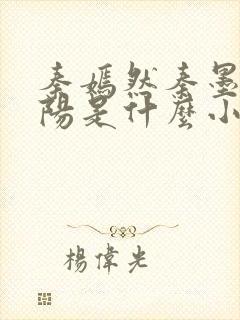 秦嫣然秦墨
陽是什麼小
楊偉光